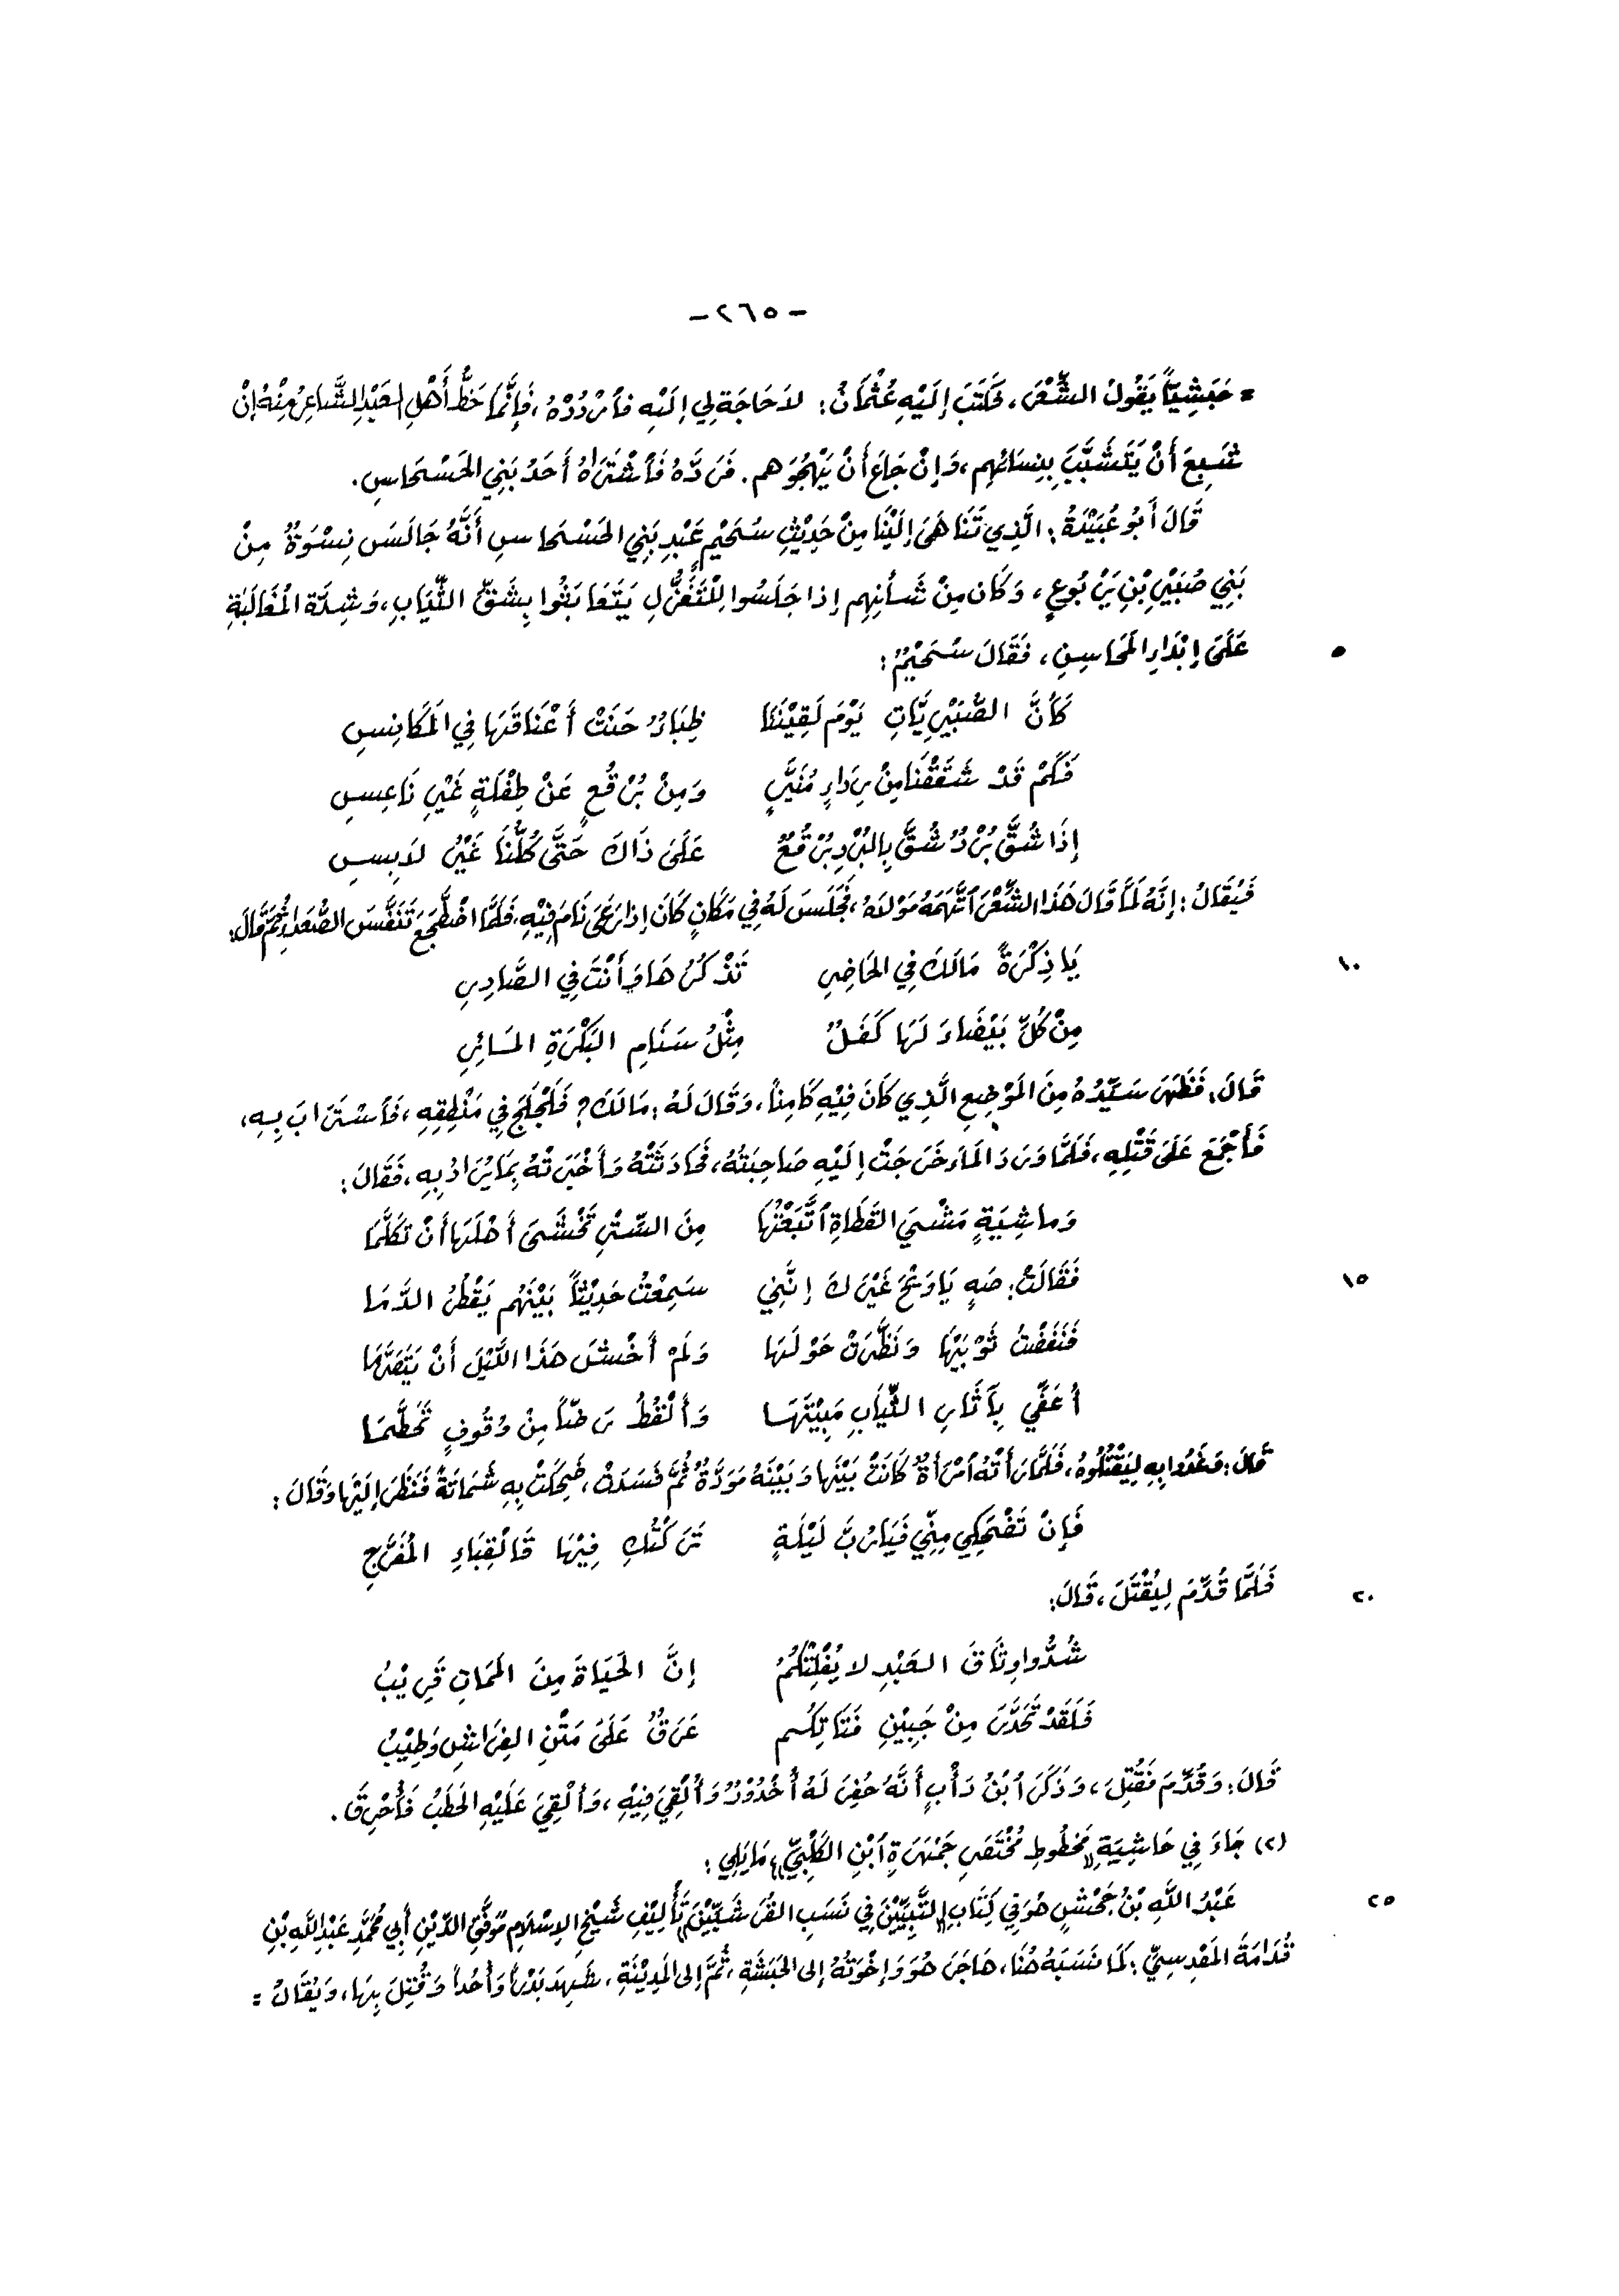 - ٢٦٥ -
= حَبَشِيّاً يَقُولُ الشِّعْرَ، فَكَتَبَ إِلَيْهِ عُثْمَانُ: لاَ حَاجَةَ لِي إِلَيْهِ فَأَرْدُدْهُ، فَإِنَّمَا حَظُّ أَهْلِ العَبْدِ الشَّاعِرِ مِنْهُ إِنْ
شَبِعَ أَنْ يَتَشَبَّبَ بِنِسَائِهِم، وَإِنْ جَاعَ أَنْ يَهْجُوَهم. فَرَدَّهُ فَأَشْتَرَاهُ أَحَدُ بَنِي الحَسْحَاسِ.
قَالَ أَبُو عُبَيْدَةَ: الَّذِي تَنَاهَى إِلَيْنَا مِنْ حَدِيْثِ سُحَيْمٍ عَبْدِ بَنِي الحَسْحَاسِ أَنَّهُ جَالَسَ نِسْوَةً مِنْ
بَنِي صُبَيْرِ بْنِ يَرْبُوعٍ، وَكَان مِنْ شَأْنِهِم إِذا جَلَسُوا لِلْتَّغَزُّلِ يَتَعَابَثُوا بِشَقِّ الثِّيَابِ، وَشِدَّة المُغَالَبَةِ
٥ عَلَى إِبْدَاءِ المَحَاسِنِ، فَقَالَ سُحَيْمٌ:
كَأَنَّ الصُّبَيْرِيَّاتِ يَوْمَ لَقِيْنَنَا ظِبَاءٌ حَنَتْ أَعْنَاقَهَا فِي المَكَانِسِ
فَكَمْ قَدْ شَقَقْنَا مِنْ رِدَاءٍ مُنَيَّرٍ وَمِنْ بُرْقُعٍ عَنْ طِفْلَةٍ غَيْرِ نَاعِسِ
إِذَا شُقَّ بُرْدٌ شُقَّ بِالبُرْدِ بُرْقُعٌ عَلَى ذَاكَ حَتَّى كُلُّنَا غَيْرُ لاَبِسِ
فَيُقَالُ: إِنَّهُ لَمَّا قَالَ هَذَا الشِّعْرَ ٱتَّهَمَهُ مَوْلاَهُ، فَجَلَسَ لَهُ فِي مَكَانٍ كَانَ إِذَا رَعَى نَامَ فِيْهِ، فَلَمَّا اضْطَجَعَ تَنَفَّسَ الصُّعَدَاءَ ثُمَّ قَالَ:
١٠ يَا ذِكْرَةً مَالَكَ فِي الحَاضِرِ تَذْكُرُهَا وَأَنْتَ فِي الصَّادِرِ
مِنْ كُلِّ بَيْضَاءَ لَهَا كَفَلٌ مِثْلُ سَنَامِ البَكْرَةِ المَائِرِ
قَالَ: فَظَهَرَ سَيِّدُهُ مِنَ المَوْضِعِ الَّذِي كَانَ فِيْهِ كَامِناً، وَقَالَ لَهُ: مَالَكَ؟ فَلَجْلَجَ فِي مَنْطِقِهِ، فَأَسْتَرَابَ بِهِ،
فَأَجْمَعَ عَلَى قَتْلِهِ، فَلَمَّا وَرَدَ المَاءَ خَرَجَتْ إِلَيْهِ صَاحِبَتُهُ، فَحَادَثَتْهُ وَأَخْبَرَتْهُ بِمَا يُرَادُ بِهِ، فَقَالَ:
وَمَاشِيَةٍ مَشْيَ القَطَاةِ ٱتَّبَعْتُهَا مِنَ السِّتْرِ تَخْشَى أَهْلَهَا أَنْ تَكَلَّمَا
١٥ فَقَالَتْ: صَهٍ يَا وَيْحَ غَيْرَكَ إِنَّنِي سَمِعْتُ حَدِيْثاً بَيْنَهُم يَقْطُرُ الدَّمَا
فَنَفَضْتُ ثَوْبَيْهَا وَنَظَّرَتْ حَوْلَهَا وَلَمْ أَخْشَ هَذَا اللَّيْلَ أَنْ يَتَصَرَّمَا
أُعَفِّي بِآثَارِ الثِّيَابِ مَبِيْتَهَا وَأَلْقُطُ رَضّاً مِنْ وُقُوفٍ تَحَطَّمَا
قَالَ: وَغَدُوا بِهِ لِيَقْتُلُوهُ، فَلَمَّا رَأَتْهُ ٱمْرَأَةٌ كَانَتْ بَيْنَها وَبَيْنَهُ مَوَدَّةٌ ثُمَّ فَسَدَتْ، ضَحِكَتْ بِهِ شَمَاتَةً فَنَظَرَ إِلَيْهَا وَقَالَ:
فَإِنْ تَضْحَكِي مِنِّي فَيَا رُبَّ لَيْلَةٍ تَرَكْتُكِ فِيْهَا كَالقِبَاءِ المُفَرَّجِ
٢٠ فَلَمَّا قُدِّمَ لِيُقْتَلَ، قَالَ:
شُدُّوا وِثَاقَ العَبْدِ لا يُفْلِتْكُمُ إِنَّ الحَيَاةَ مِنَ المَمَاتِ قَرِيْبُ
فَلَقَدْ تَحَدَّرَ مِنْ جَبِيْنِ فَتَاتِكُم عَرَقٌ عَلَى مَتْنِ الفِرَاشِ وَطِيْبُ
قَالَ: وَقُدِّمَ فَقُتِلَ، وَذَكَرَ ٱبْنُ دَأْبٍ أَنَّهُ حُفِرَ لَهُ أُخْدُوْدٌ وَأُلْقِيَ فِيْهِ، وَأُلْقِيَ عَلَيْهِ الحَطَبُ فَأُحْرِقَ.
(٢) جَاءَ فِي حَاشِيَةِ «مَخطُوطِ مُخْتَصَرِ جَمْهَرَةِ ٱبْنِ الكَلْبِيِّ» مَا يَلِي:
٢٥ عَبْدُ اللهِ بْنُ جَحْشٍ هُوَ فِي كِتَابِ «التَّبْيِيْنَ فِي نَسَبِ القُرَشَيِّيْنَ» تَأْلِيْفِ شَيْخِ الإِسْلاَمِ مُوَفَّقِ الدِّيْنِ أَبِي مُحَمَّدٍ عَبْدِ اللَّهِ بْنِ
قُدَامَةَ المَقْدِسِيِّ: كَمَا نَسَبَهُ هُنَا، هَاجَرَ هُوَ وَإِخْوَتُهُ إِلى الحَبَشَةِ، ثُمَّ إِلى المَدِيْنَةِ، شَهِدَ بَدْراً وَأُحُداً وَقُتِلَ بِهَا، وَيُقَالُ =